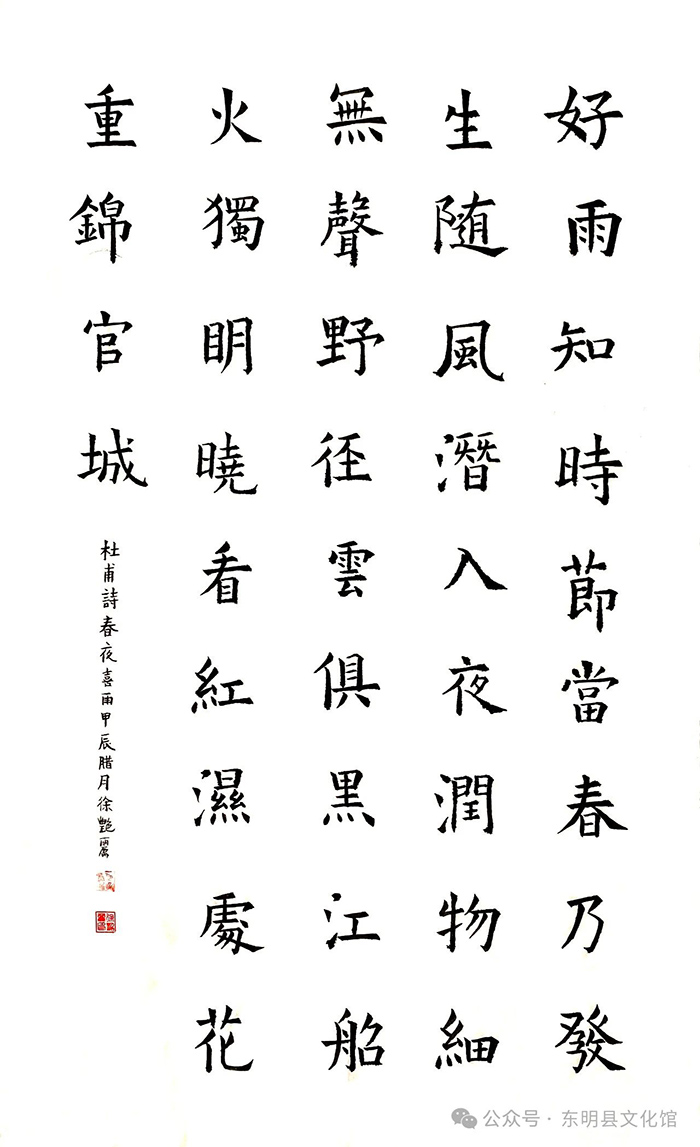 好雨知時節當春乃發
生随風潛入夜潤物細
無聲野径雲俱黑江船
火獨明曉看紅濕處花
重錦官城
杜甫詩春夜喜雨甲辰腊月徐艷麗
公众号·东明县文化馆